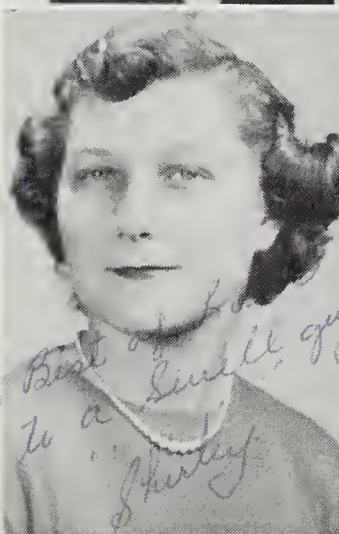 Best of
to a Swell guy
Shirley